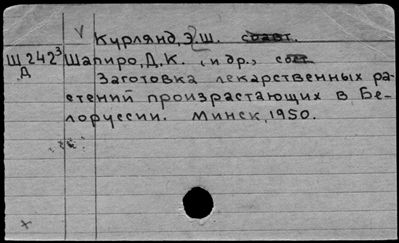 V Курлянд, Э.Ш. соавт.
Щ242³ Шапиро, Д.К. , и др.,
Д Заготовка лекарственных ра-
стений произрастающих в Бе-
лоруссии. Минск, 1950.